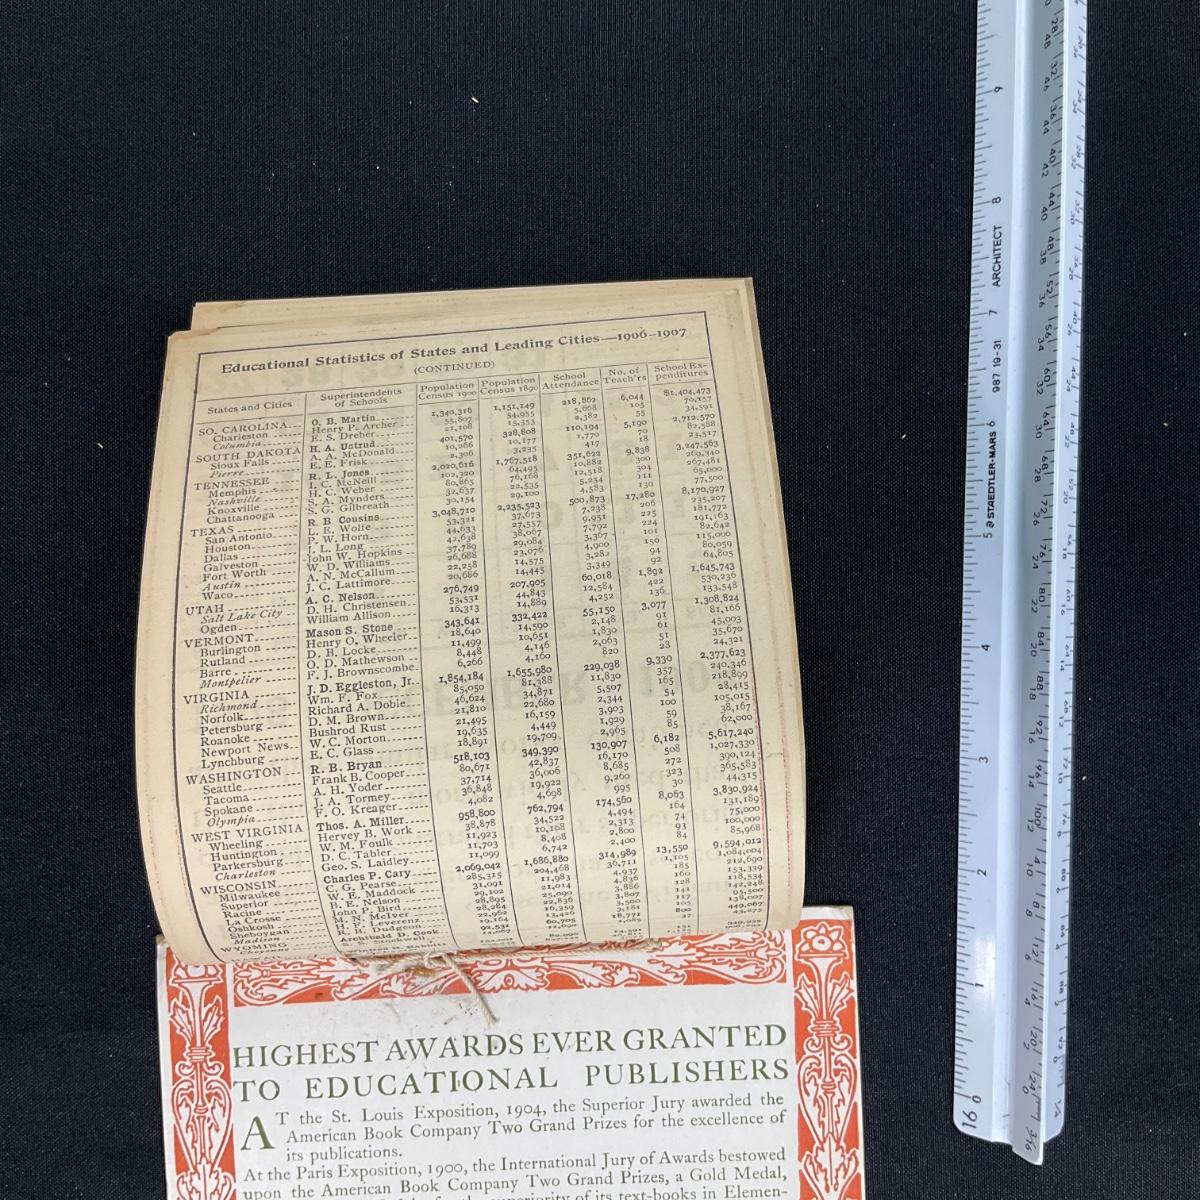 Educational Statistics of States and Leading Cities—1906–1907
(CONTINUED)
States and Cities Superintendents of Schools Population Census 1900 Population Census 1890 School Attendance No. of Teach'rs School Expenditures
SO. CAROLINA O. B. Martin 1,340,316 1,151,149 218,862 6,044 $1,404,473
Charleston Henry P. Archer 55,807 54,955 5,668 105 70,157
Columbia E. S. Dreher 21,108 15,353 2,382 55 34,591
SOUTH DAKOTA H. A. Ustrud 401,570 328,808 110,194 5,190 2,712,570
Sioux Falls A. A. McDonald 10,266 10,177 1,770 70 82,588
Pierre E. E. Frisk 2,306 3,235 417 18 23,517
TENNESSEE R. L. Jones 2,020,616 1,767,518 351,622 9,838 3,247,563
Memphis I. C. McNeill 102,320 64,495 10,882 300 269,340
Nashville H. C. Weber 80,865 76,168 12,518 304 267,481
Knoxville S. A. Mynders 32,637 22,535 5,254 111 65,000
Chattanooga S. G. Gilbreath 30,154 29,100 4,583 130 77,500
TEXAS R. B. Cousins 3,048,710 2,235,523 500,873 17,280 8,170,927
San Antonio L. E. Wolfe 53,321 37,673 7,238 206 235,207
Houston P. W. Horn 44,633 27,557 9,951 225 181,772
Dallas J. L. Long 42,638 38,067 7,792 224 191,163
Galveston John W. Hopkins 37,789 29,084 3,367 101 82,642
Fort Worth W. D. Williams 26,688 23,076 4,900 150 115,000
Austin A. N. McCallum 22,258 14,575 3,282 94 80,059
Waco J. C. Lattimore 20,686 14,445 3,349 92 64,805
UTAH A. C. Nelson 276,749 207,905 60,018 1,892 1,645,743
Salt Lake City D. H. Christensen 53,531 44,843 12,584 422 530,236
Ogden William Allison 16,313 14,889 4,252 136 133,548
VERMONT Mason S. Stone 343,641 332,422 55,150 3,077 1,308,824
Burlington Henry O. Wheeler 18,640 14,590 2,148 91 81,166
Rutland D. B. Locke 11,499 10,651 1,830 61 45,003
Barre O. D. Mathewson 8,448 4,146 2,063 51 35,670
Montpelier F. J. Brownscombe 6,266 4,160 820 28 24,321
VIRGINIA J. D. Eggleston, Jr. 1,854,184 1,655,980 229,038 9,330 2,377,623
Richmond Wm. F. Fox 85,050 81,388 11,830 357 240,346
Norfolk Richard A. Dobie 46,624 34,871 5,507 165 218,899
Petersburg D. M. Brown 21,810 22,680 2,344 54 28,415
Roanoke Bushrod Rust 21,495 16,159 3,903 100 105,015
Newport News W. C. Morton 19,635 4,449 1,929 59 38,167
Lynchburg E. C. Glass 18,891 19,709 2,965 85 62,000
WASHINGTON R. B. Bryan 518,103 349,390 130,907 6,182 5,617,240
Seattle Frank B. Cooper 80,671 42,837 16,170 508 1,027,330
Tacoma A. H. Yoder 37,714 36,006 8,685 272 390,124
Spokane J. A. Tormey 36,848 19,922 9,260 323 365,583
Olympia F. O. Kreager 4,082 4,698 995 30 44,315
WEST VIRGINIA Thos. A. Miller 958,800 762,794 174,560 8,063 3,830,924
Wheeling Hervey B. Work 38,878 34,522 4,494 164 131,189
Huntington W. M. Foulk 11,923 10,108 2,313 74 75,000
Parkersburg D. C. Tabler 11,703 8,408 2,800 93 100,000
Charleston Geo. S. Laidley 11,099 6,742 2,400 84 85,968
WISCONSIN Charles P. Cary 2,069,042 1,686,880 314,989 13,550 9,594,012
Milwaukee C. G. Pearse 285,315 204,468 36,711 1,105 1,084,004
Superior W. E. Maddock 31,091 11,983 4,937 185 212,690
Racine B. E. Nelson 29,102 21,014 4,836 160 153,339
La Crosse John P. Bird 28,895 25,090 3,886 128 118,534
Oshkosh M. N. McIver 28,284 22,836 3,807 141 142,248
Sheboygan H. F. Leverenz 22,962 16,359 3,500 117 95,500
Madison R. B. Dudgeon 19,164 13,426 3,181 103 138,007
WYOMING Archibald D. Cook 92,531 60,705 18,771 800 449,067
Cheyenne Stockwell
HIGHEST AWARDS EVER GRANTED
TO EDUCATIONAL PUBLISHERS
AT the St. Louis Exposition, 1904, the Superior Jury awarded the
American Book Company Two Grand Prizes for the excellence of
its publications.
At the Paris Exposition, 1900, the International Jury of Awards bestowed
upon the American Book Company Two Grand Prizes, a Gold Medal,
superiority of its text-books in Elemen-
STAEDTLER-MARS 987 19-31 ARCHITECT
16 0 1 2 3 4 5 6 7 8 9